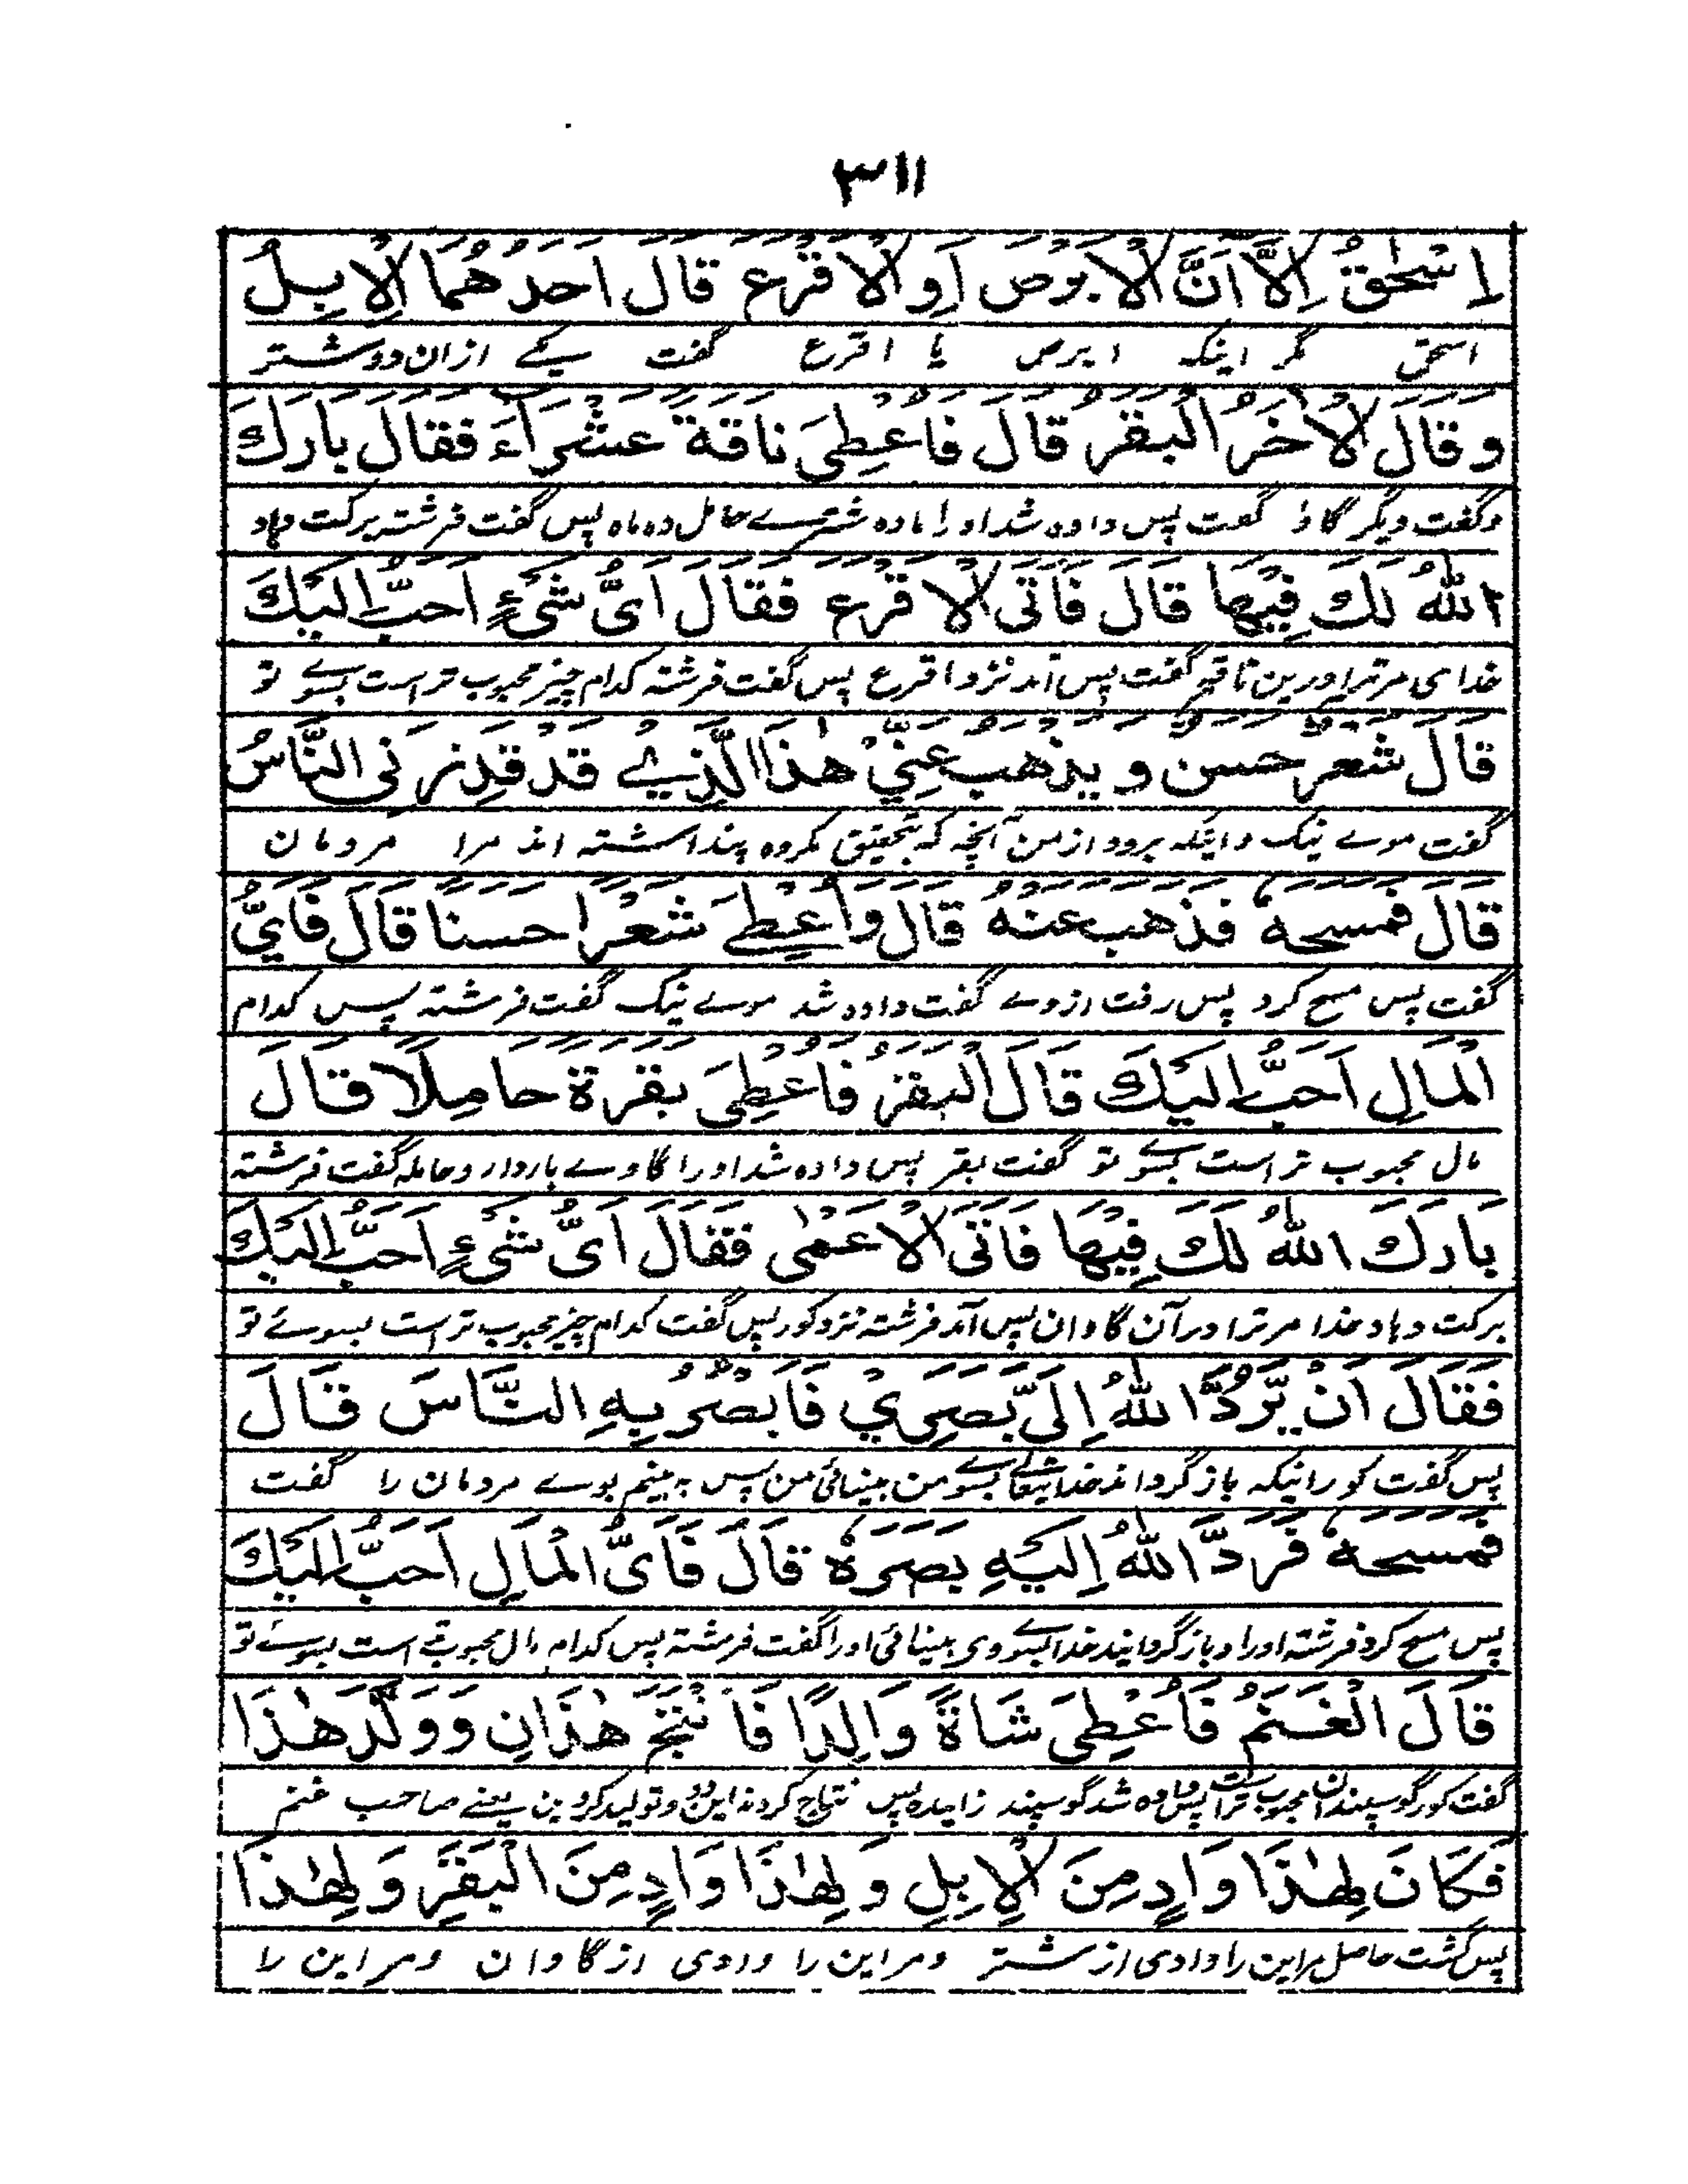 ٣١١
اِسْحٰقُ اِلَّا اَنَّ الْاَبْرَصَ اَوِ الْاَقْرَعَ قَالَ اَحَدُهُمَا الْاِبِلُ
اسحق مگر اینکه ابرص یا اقرع گفت یکے ازان دو شتر
وَقَالَ الْاٰخَرُ الْبَقَرُ قَالَ فَاُعْطِيَ نَاقَةً عُشَرَاءَ فَقَالَ بَارَكَ
وگفت دیگر گاو گفت پس داده شد او را ماده شترے حامل ده ماه پس گفت فرشته برکت دهاد
اللّٰهُ لَكَ فِيْهَا قَالَ فَاَتَى الْاَقْرَعَ فَقَالَ اَيُّ شَيْءٍ اَحَبُّ اِلَيْكَ
خدای مر ترا درین ناقه گفت پس آمد نزد اقرع پس گفت فرشته کدام چیز محبوب تر است بسوے تو
قَالَ شَعْرٌ حَسَنٌ وَيَذْهَبُ عَنِّيْ هٰذَا الَّذِيْ قَدْ قَذِرَنِي النَّاسُ
گفت موے نیک واینکه برود از من آنچه که بتحقیق مکروه پنداشته اند مرا مردمان
قَالَ فَمَسَحَهُ فَذَهَبَ عَنْهُ قَالَ وَاُعْطِيَ شَعْرًا حَسَنًا قَالَ فَاَيُّ
گفت پس مسح کرد پس رفت ازوے گفت داده شد موے نیک گفت فرشته پس کدام
الْمَالِ اَحَبُّ اِلَيْكَ قَالَ الْبَقَرُ فَاُعْطِيَ بَقَرَةً حَامِلًا قَالَ
مال محبوب تر است بسوے تو گفت بقر پس داده شد او را گاوے باردار وحامله گفت فرشته
بَارَكَ اللّٰهُ لَكَ فِيْهَا فَاَتَى الْاَعْمٰى فَقَالَ اَيُّ شَيْءٍ اَحَبُّ اِلَيْكَ
برکت دهاد خدا مر ترا در آن گاوان پس آمد فرشته نزد کور پس گفت کدام چیز محبوب تر است بسوئے تو
فَقَالَ اَنْ يَّرُدَّ اللّٰهُ اِلَيَّ بَصَرِيْ فَاَبْصُرُ بِهِ النَّاسَ قَالَ
پس گفت کور اینکه باز گرداند خدایتعالے بسوے من بینائی من پس به بینم بوے مردمان را گفت
فَمَسَحَهُ فَرَدَّ اللّٰهُ اِلَيْهِ بَصَرَهُ قَالَ فَاَيُّ الْمَالِ اَحَبُّ اِلَيْكَ
پس مسح کرد فرشته او را و باز گردانید خدا بسوے وی بینائی او را گفت فرشته پس کدام مال محبوب تر است بسوئے تو
قَالَ الْغَنَمُ فَاُعْطِيَ شَاةً وَالِدًا فَاَنْتَجَ هٰذَانِ وَوَلَّدَ هٰذَا
گفت کور گوسپندان محبوب تر است پس داده شد گوسپند زاینده پس نتاج کردند این دو و تولید کرد این یعنے صاحب غنم
فَكَانَ لِهٰذَا وَادٍ مِنَ الْاِبِلِ وَلِهٰذَا وَادٍ مِنَ الْبَقَرِ وَلِهٰذَا
پس گشت حاصل مر این را وادی از شتر ومر این را وادی از گاوان ومر این را